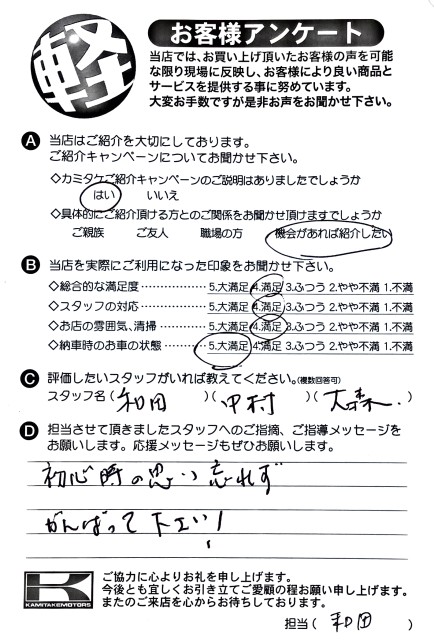 軽
お客様アンケート
当店では、お買い上げ頂いたお客様の声を可能
な限り現場に反映し、お客様により良い商品と
サービスを提供する事に努めています。
大変お手数ですが是非お声をお聞かせ下さい。
A 当店はご紹介を大切にしております。
ご紹介キャンペーンについてお聞かせ下さい。
◇カミタケご紹介キャンペーンのご説明はありましたでしょうか
はい いいえ
◇具体的にご紹介頂ける方とのご関係をお聞かせ頂けますでしょうか
ご親族 ご友人 職場の方 機会があれば紹介したい
B 当店を実際にご利用になった印象をお聞かせ下さい。
◇総合的な満足度 ……………… 5.大満足 4.満足 3.ふつう 2.やや不満 1.不満
◇スタッフの対応 ……………… 5.大満足 4.満足 3.ふつう 2.やや不満 1.不満
◇お店の雰囲気、清掃 ………… 5.大満足 4.満足 3.ふつう 2.やや不満 1.不満
◇納車時のお車の状態 ………… 5.大満足 4.満足 3.ふつう 2.やや不満 1.不満
C 評価したいスタッフがいれば教えてください。(複数回答可)
スタッフ名 ( 和田 ) ( 中村 ) ( 大森. )
D 担当させて頂きましたスタッフへのご指摘、ご指導メッセージを
お願いします。応援メッセージもぜひお願いします。
初心時の思い忘れず
がんばって下エい!
K
KAMITAKEMOTORS
ご協力に心よりお礼を申し上げます。
今後とも宜しくお引き立てご愛顧の程お願い申し上げます。
またのご来店を心からお待ちしております。
担当 ( 和田 )